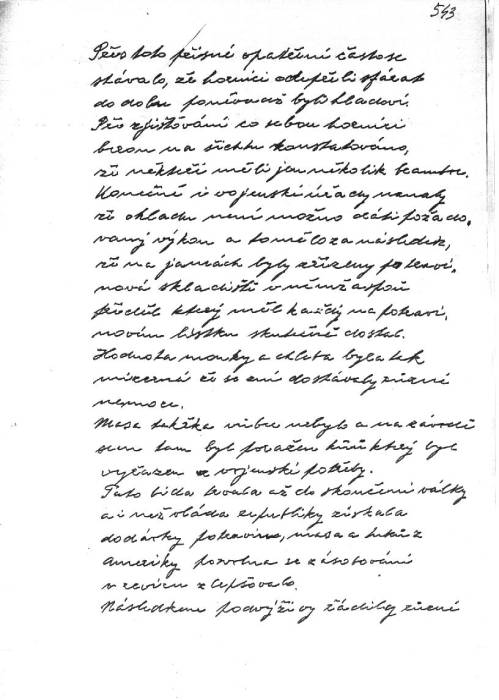 543
Přes toto přísné opatření často se
stávalo, že horníci odepřeli sfárat
do dolu poněvadž byli hladoví.
Při zjišťování co sebou horníci
berou na šichtu konstatováno,
že někteří měli jen několik brambor.
Konečně i vojenské úřady uznaly
že o hladu není možno dáti požado-
vaný výkon a to mělo za následek,
že na jamách byly zřízeny potravi-
nová skladiště v němž aspoň
příděl který měl každý na potravi-
novém lístku skutečně dostal.
Hodnota mouky a chleba byla tak
mizerná že se cní dostávaly různé
nemoce.
Masa takřka vůbec nebylo a na závodě
sem tam byl poražen kůň který byl
vyřazen z vojenské potřeby.
Tato bída trvala až do skončení války
a i než vláda republiky získala
dodávky potravin, masa a tuků z
Ameriky pozvolna se zásobování
v revíru zlepšovalo.
Následkem podvýživy řádily různé